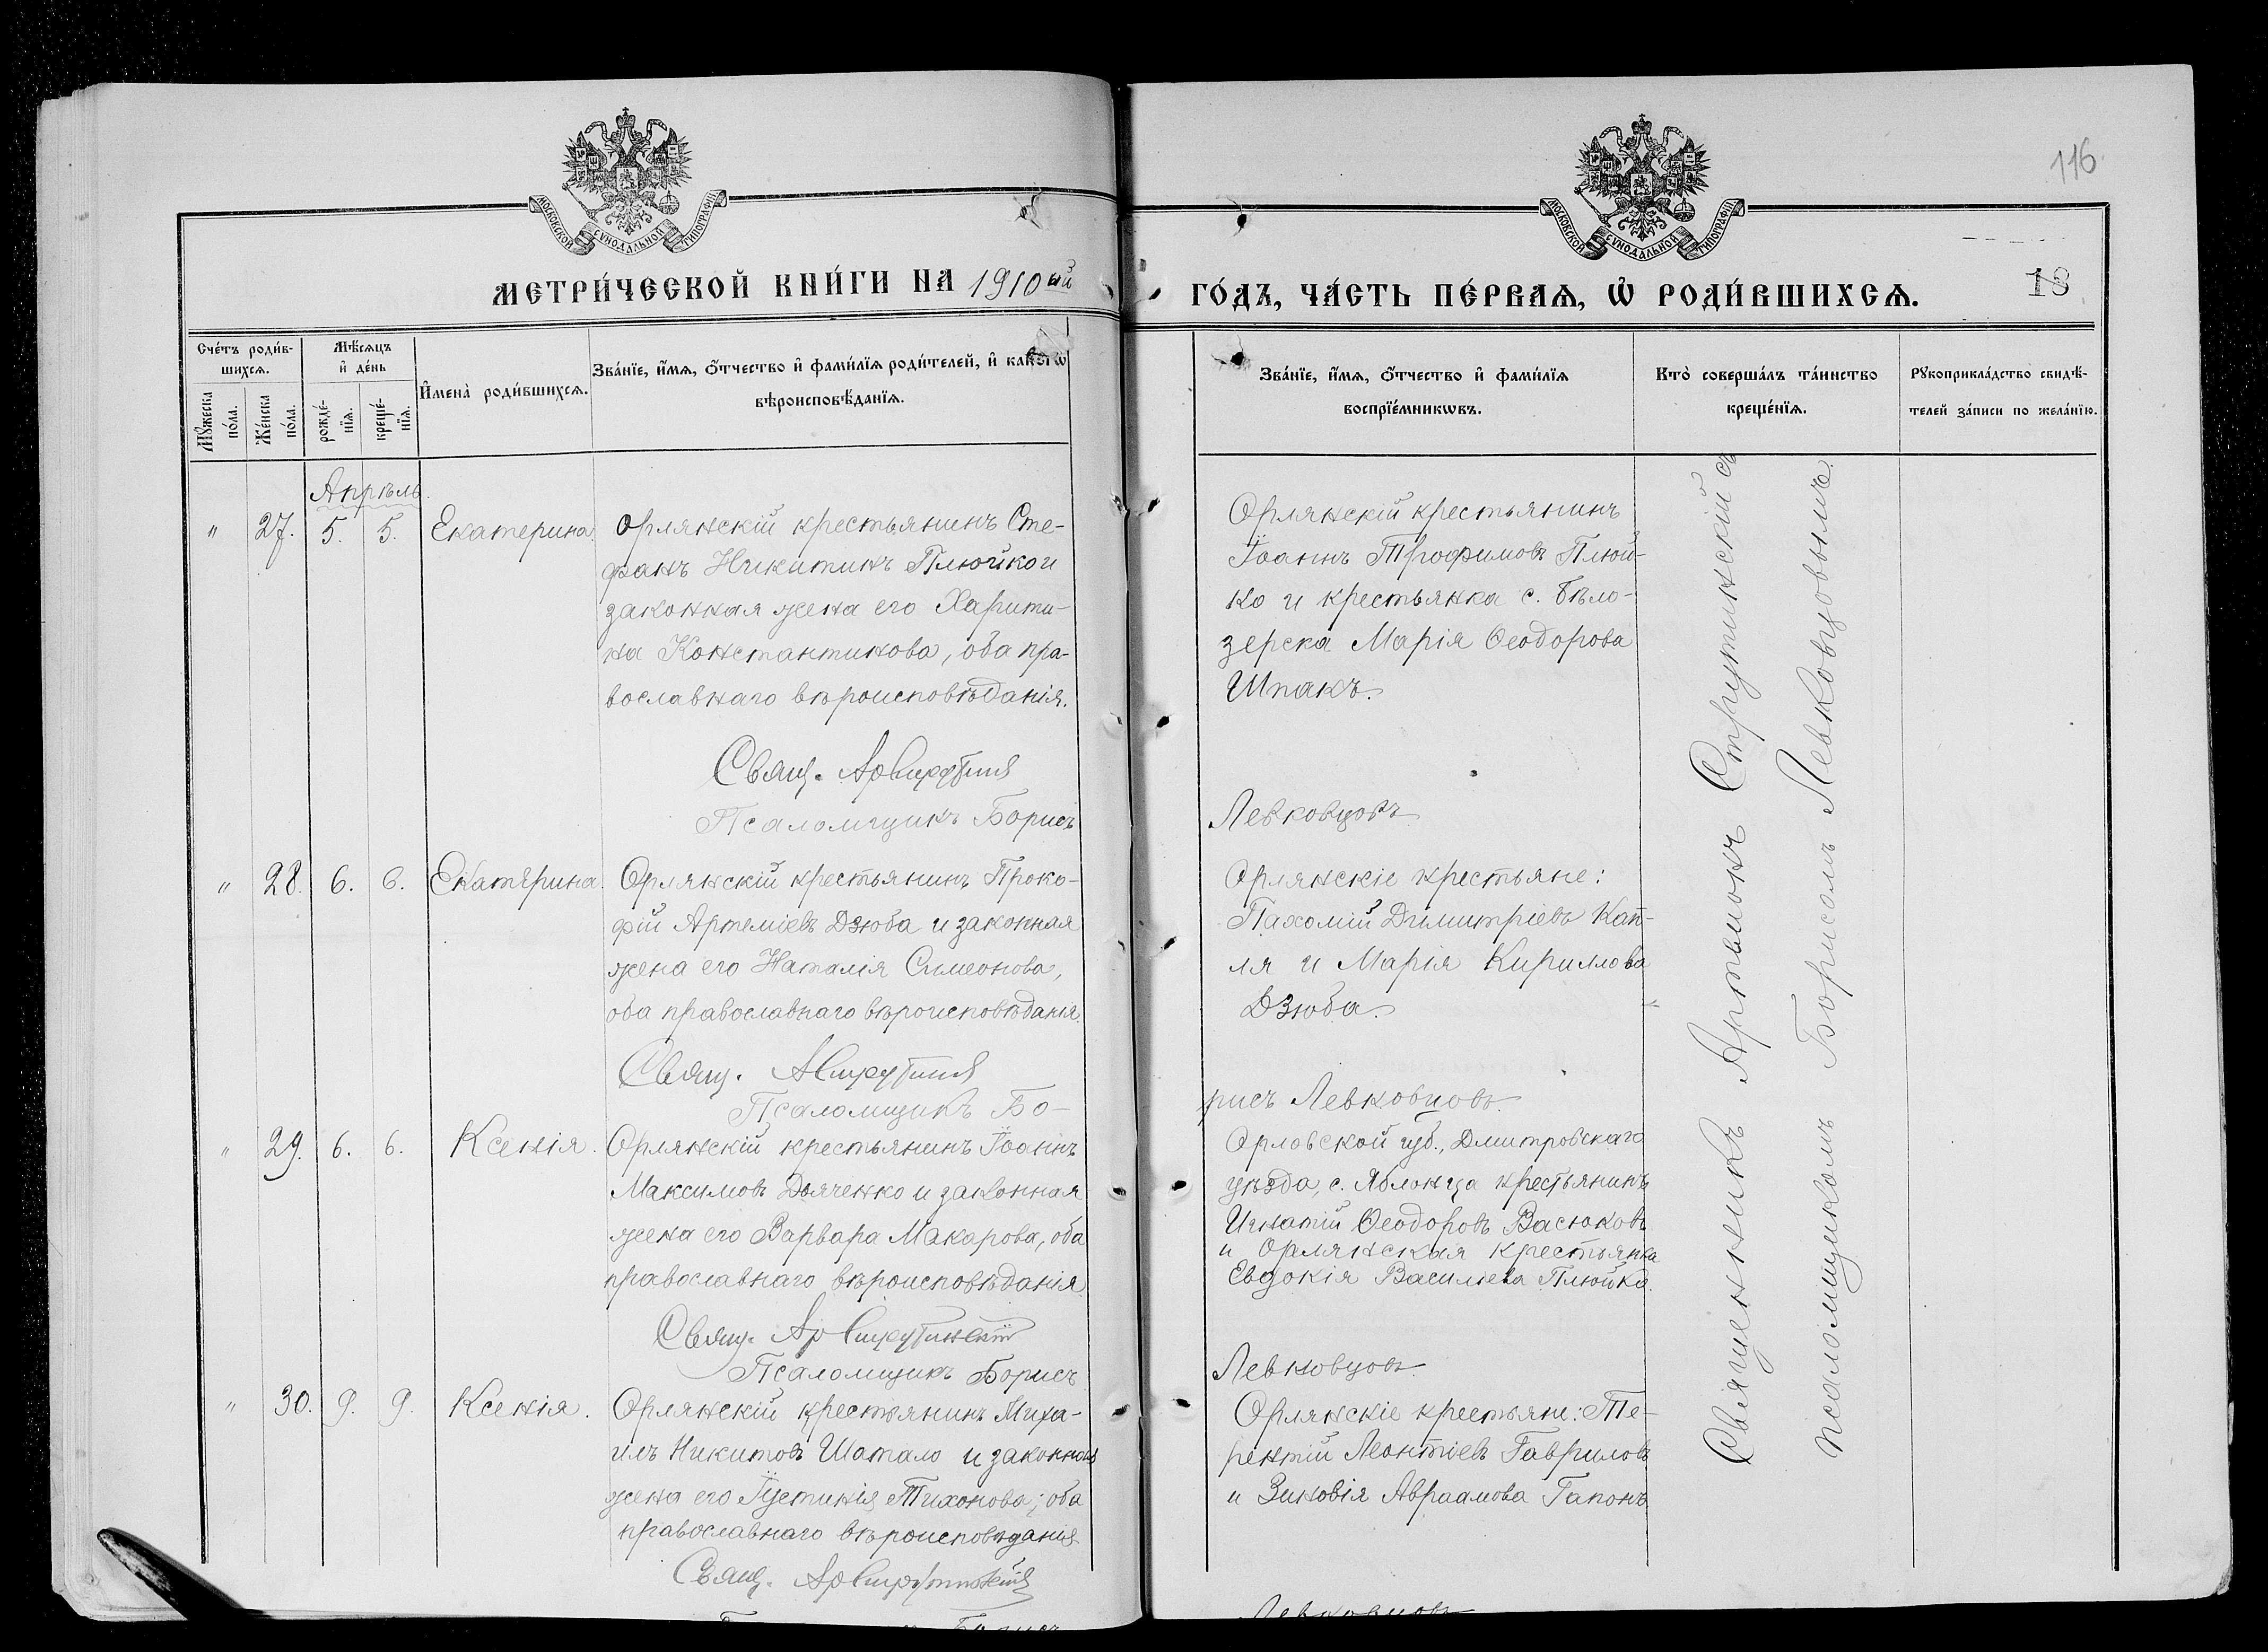 116.
МОСКОВСКОЙ СѴНОДАЛЬНОЙ ТИПОГРАФІИ
МОСКОВСКОЙ СѴНОДАЛЬНОЙ ТИПОГРАФІИ
МЕТРИ́ЧЕСКОЙ КНИ́ГИ НА 1910ый
ГО́ДЪ, ЧА́СТЬ ПЕ́РВАѦ, Ѡ҆ РОДИ́ВШИХСѦ.
18
Сче́тъ роди́в-
шихсѧ.
Мꙋ́жеска
по́ла.
Же́нска
по́ла.
Мѣ́сѧцъ
и҆ де́нь
рожде́-
нїѧ.
креще́-
нїѧ.
И҆мена̀ роди́вшихсѧ.
Зва́нїе, и҆́мѧ, ѻ҆́тчество и҆ фами́лїѧ роди́телей, и҆ како́гѡ
вѣроисповѣ́данїѧ.
Зва́нїе, и҆́мѧ, ѻ҆́тчество и҆ фами́лїѧ
воспрїе́мникѡвъ.
Кто̀ соверша́лъ та́инство
креще́нїѧ.
Рꙋкоприкла́дство свидѣ́-
телей за́писи по жела́нїю.
Апрѣль.
" 27. 5. 5. Екатерина.
Орлянскій крестьянинъ Сте-
фанъ Никитинъ Плюйко и
законная жена его Харити-
на Константинова, оба пра-
вославнаго вѣроисповѣданія.
Свящ.
Псаломщикъ Борисъ
Орлянскій крестьянинъ
Іоаннъ Трофимовъ Плюй-
ко и крестьянка с. Бѣло-
зерска Марія Ѳеодорова
Шпакъ.
Левковцовъ
" 28. 6. 6. Екатерина.
Орлянскій крестьянинъ Проко-
фій Артеміевъ Дзюба и законная
жена его Наталія Симеонова,
оба православнаго вѣроисповѣданія.
Свящ.
Псаломщикъ Бо-
Орлянскіе крестьяне:
Пахомій Димитріевъ Кап-
ля и Марія Кириллова
Дзюба.
рисъ Левковцовъ.
" 29. 6. 6. Ксенія.
Орлянскій крестьянинъ Іоаннъ
Максимовъ Дьяченко и законная
жена его Варвара Макарова, оба
православнаго вѣроисповѣданія
Свящ. Ар Струтинскій
Псаломщикъ Борисъ
Орловской губ., Дмитровскаго
уѣзда, с. Яблонца крестьянинъ
Игнатій Ѳеодоровъ Васюковъ
и Орлянская крестьянка
Евдокія Василіева Плюйко.
Левковцовъ
" 30. 9. 9. Ксенія.
Орлянскій крестьянинъ Миха-
илъ Никитовъ Шатало и законная
жена его Іустинія Тихонова; оба
православнаго вѣроисповѣданія.
Свящ. Ар Струтинскій
Борисъ
Орлянскіе крестьяне: Те-
рентій Леонтіевъ Гавриловъ
и Зиновія Авраамова Гапонъ.
Левковцовъ
Священникъ Артемонъ Струтинскій съ
псаломщикомъ Борисомъ Левковцовымъ.